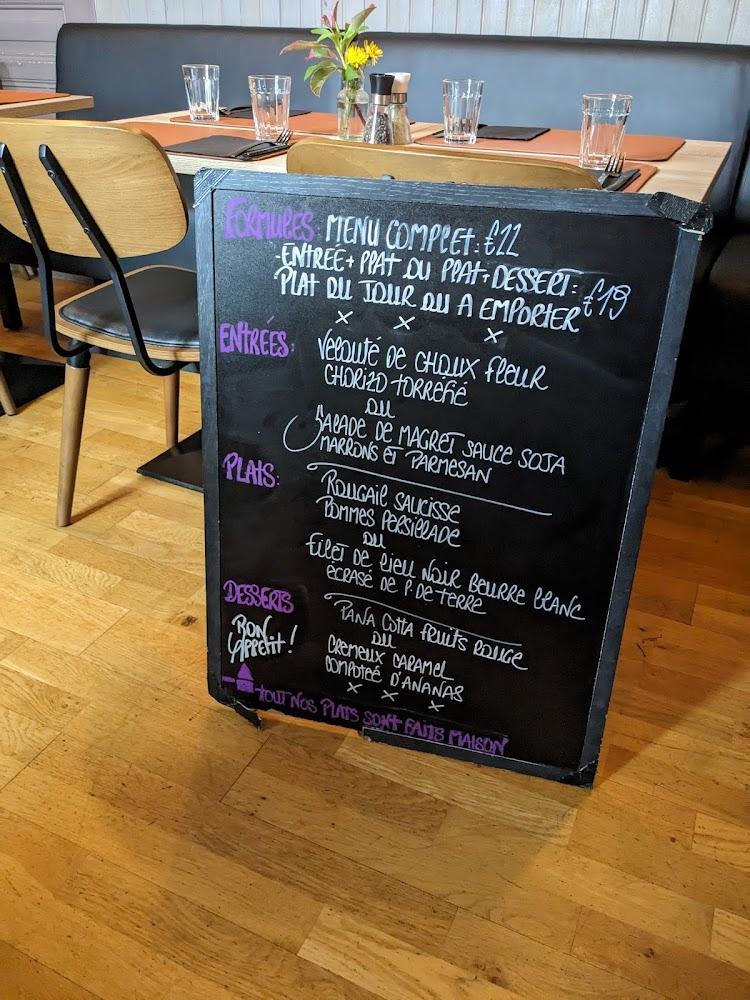 FORMULES: MENU COMPLET: €22
-ENTRÉE + PLAT OU PLAT + DESSERT: €19
PLAT DU JOUR OU A EMPORTER
x x x
ENTRÉES: VELOUTÉ DE CHOUX FLEUR
CHORIZO TORRÉFIÉ
OU
SALADE DE MAGRET SAUCE SOJA
MARRONS ET PARMESAN
PLATS: ROUGAIL SAUCISSE
POMMES PERSILLADE
OU
FILET DE LIEU NOIR BEURRE BLANC
ÉCRASÉ DE P DE TERRE
DESSERTS PANA COTTA FRUITS ROUGE
OU
CREMEUX CARAMEL
COMPOTÉE D'ANANAS
x x x
BON
APPETIT!
TOUT NOS PLATS SONT FAITS MAISON